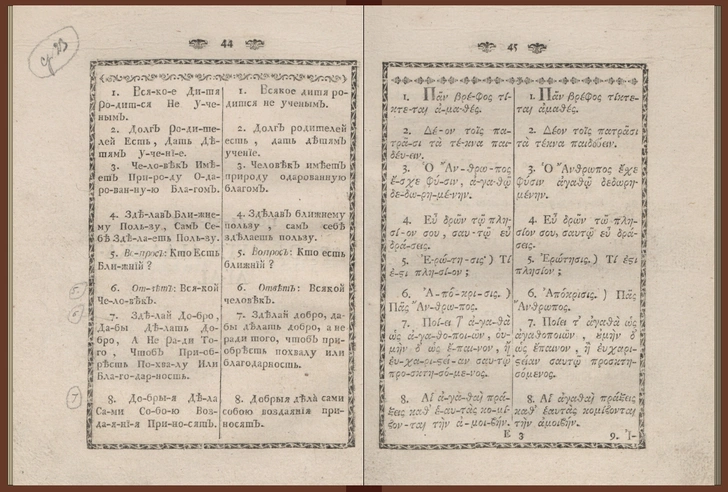 44
1. Вся-кое Ди-тя
Ро-дит-ся Не У-че-
нымъ.
2. Долгъ Ро-ди-те-
лей Есть, Дать Дѣ-
тямъ У-че-нїе.
3. Че-ло-вѣкъ Имѣ-
етъ При-ро-ду О-да-
ро-ван-ну-ю Бла-гомъ.
4. Здѣ-лавъ Бли-жне-
му Поль-зу, Самъ Се-
бѣ Здѣ-ла-ешь Поль-зу.
5. Во-просъ: Кто Есть
Бли-жній?
6. От-вѣтъ: Вся-кой
Че-ло-вѣкъ.
7. Здѣ-лай До-бро,
Да-бы Дѣ-лать До-
бро, А Не Ра-ди То-
го, Чтобъ При-об-
рѣсть По-хва-лу Или
Бла-го-дар-ность.
8. До-бры-я Дѣ-ла
Са-ми Со-бо-ю Воз-
да-я-нї-я При-но-сятъ.
1. Всякое дитя ро-
дится не ученымъ.
2. Долгъ родителей
есть, дать дѣтямъ
ученїе.
3. Человѣкъ имѣетъ
природу одарованную
благомъ.
4. Здѣлавъ ближнему
пользу, самъ себѣ
здѣлаешь пользу.
5. Вопросъ: Кто есть
ближній?
6. Отвѣтъ: Всякой
человѣкъ.
7. Здѣлай добро, да-
бы дѣлать добро, а не
ради того, чтобъ прі-
обрѣсть похвалу или
благодарность.
8. Добрыя дѣла сами
собою воздаянїя при-
носятъ.
45
1. Πᾶν βρέ-φος τί-
κτε-ται ἀ-μα-θές.
2. Δέ-ον τοῖς πα-
τρά-σι τὰ τέ-κνα παι-
δεύ-ειν.
3. Ὁ Ἄν-θρω-πος
ἔ-σχε φύ-σιν, ἀ-γα-θῷ
δε-δω-ρη-μέ-νην.
4. Εὖ δρῶν τῷ πλη-
σί-ον σου, σαυ-τῷ εὖ
δρά-σεις.
5. Ἐ-ρώ-τη-σις) Τί
ἐ-ϛι πλη-σί-ον;
6. Ἀ-πό-κρι-σις.)
Πᾶς Ἄν-θρω-πος.
7. Ποί-ει τ' ἀ-γα-θὰ
ὡς ἀ-γα-θο-ποι-ῶν, οὐ-
μὴν δ' ὡς ἔ-παι-νον, ἢ
εὐ-χα-ρι-ϛεί-αν σαυ-τῷ
προ-σκτη-σό-με-νος.
8. Αἱ ἀ-γα-θαὶ πρά-
ξεις καθ' ἑ-αυ-τὰς κο-μί-
ζον-ται τὴν ἀ-μοι-βήν.
1. Πᾶν βρέφος τίκτε-
ται ἀμαθές.
2. Δέον τοῖς πατράσι
τὰ τέκνα παιδεύειν.
3. Ὁ Ἄνθρωπος ἔχε
φύσιν ἀγαθῷ δεδωρη-
μένην.
4. Εὖ δρῶν τῷ πλη-
σίον σου, σαυτῷ εὖ δρά-
σεις.
5. Ἐρώτησις.) Τί ἐϛι
πλησίον;
6. Ἀπόκρισις.) Πᾶς
Ἄνθρωπος.
7. Ποίει τ' ἀγαθὰ ὡς
ἀγαθοποιῶν, ȣ̓μὴν δ'
ὡς ἔπαινον, ἢ εὐχαρι-
ϛείαν σαυτῷ προσκτη-
σόμενος.
8. Αἱ ἀγαθαὶ πράξεις
καθ' ἑαυτὰς κομίζονται
τὴν ἀμοιβήν.
Е 3
9. Ἱ-